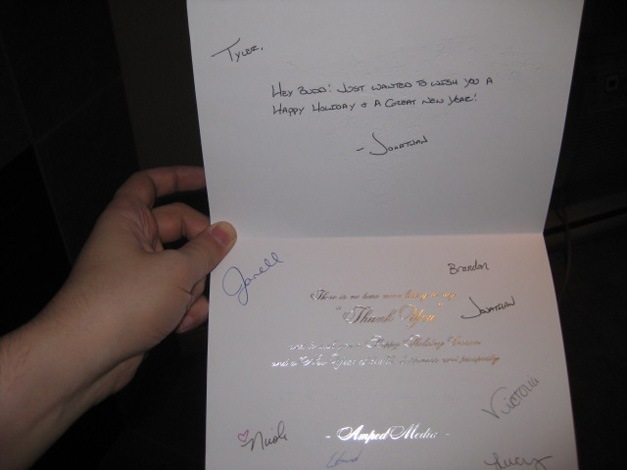 Tyler,
Hey Budd! Just wanted to wish you a
Happy Holiday & a Great New Year!
- Jonathan
Janell
Brandon
There is no time more fitting to say
"Thank You"
Jonathan
and to wish you a Happy Holiday Season
and a New Year of health, happiness and prosperity
Victoria
Nicole
- Amped Media -
Lucy